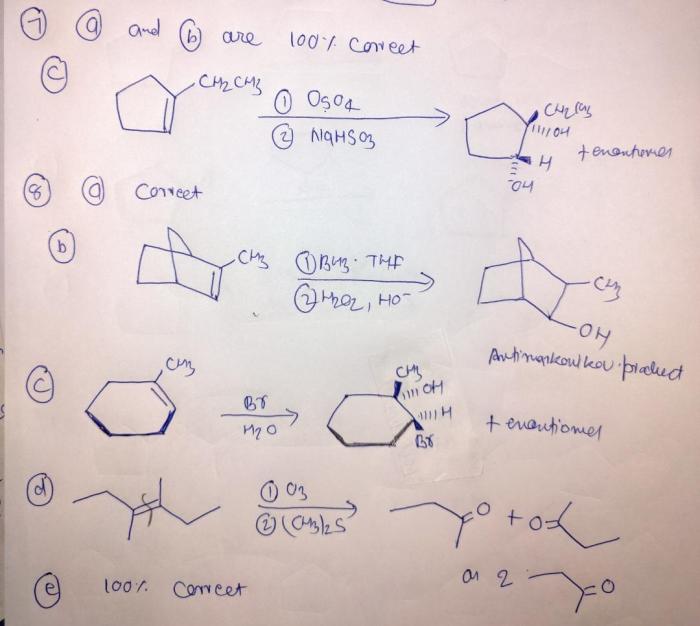 7 a and b are 100% Correct
c
CH2CH3
① OsO4
② NaHSO3
CH2CH3
OH
H
OH
+ enantiomer
8 a Correct
b
CH3
① BH3 · THF
② H2O2, HO-
CH3
OH
Antimarkovnikov product
c
CH3
Br
H2O
CH3
OH
H
Br
+ enantiomer
d
① O3
② (CH3)2S
O + O
or 2 O
e 100% Correct